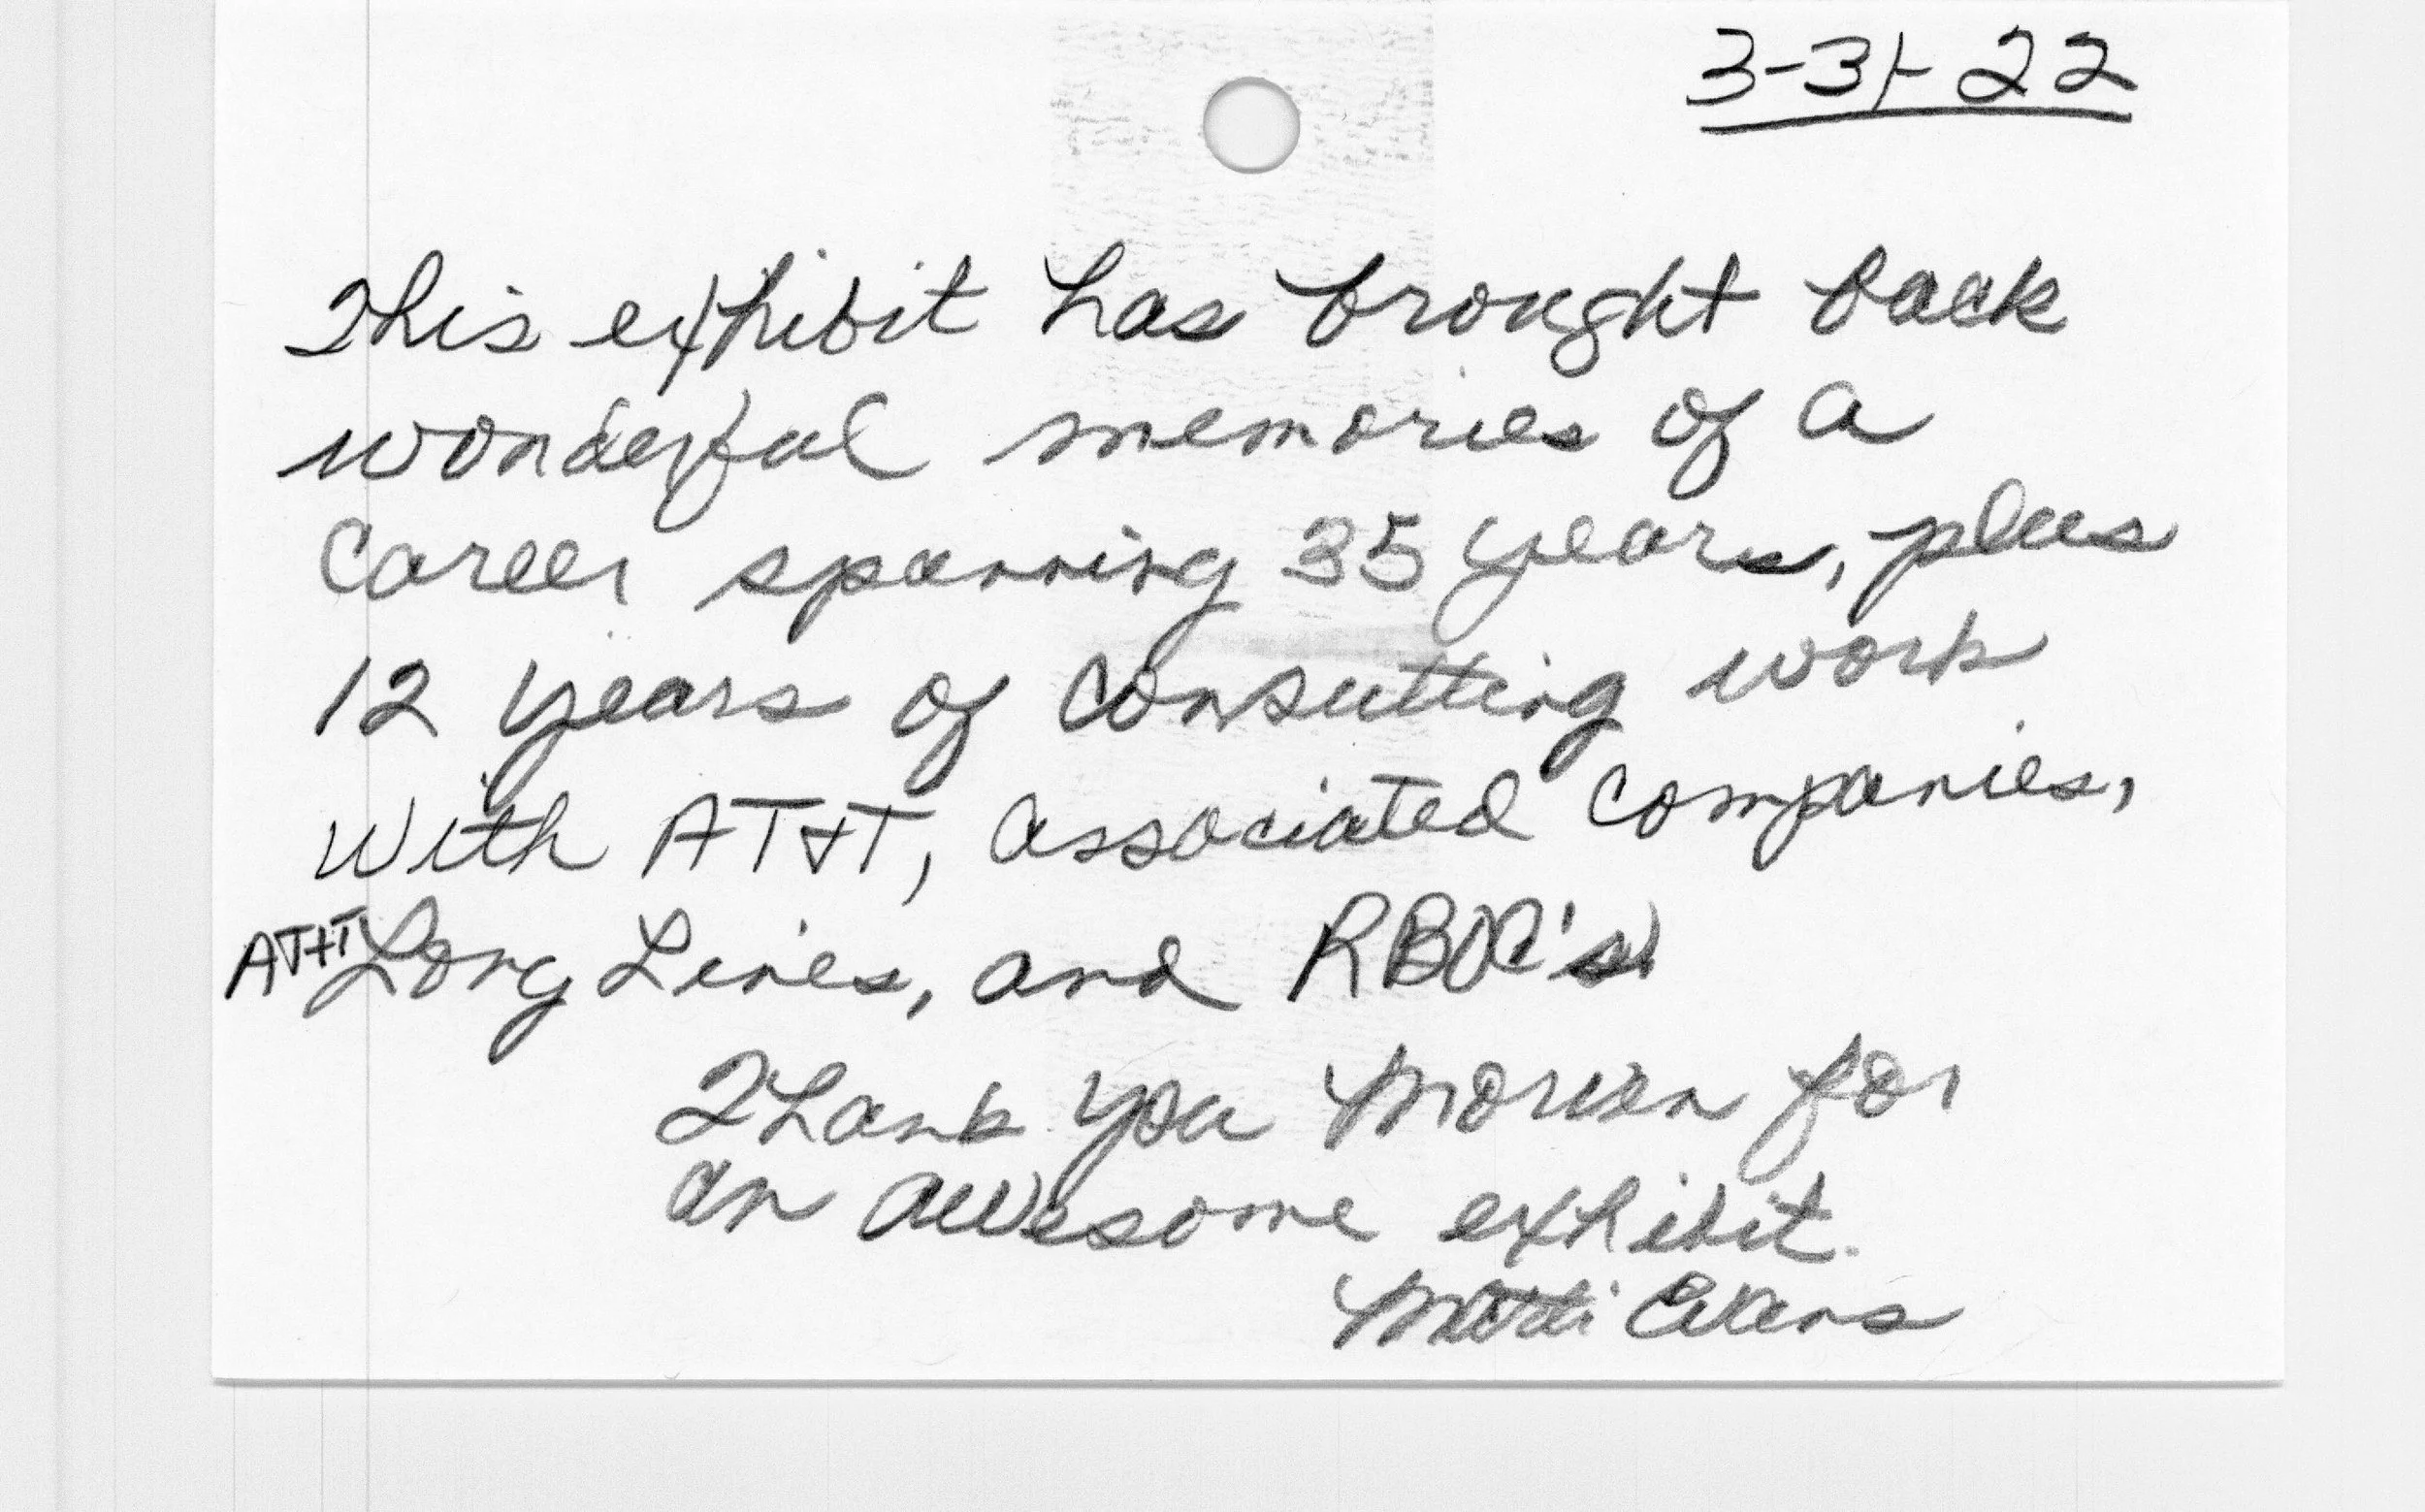 3-31-22
This exhibit has brought back
wonderful memories of a
career spanning 35 years, plus
12 years of consulting work
with AT&T, associated companies,
AT&T Long Lines, and RBOC's
Thank you Morven for
an awesome exhibit.
Evans